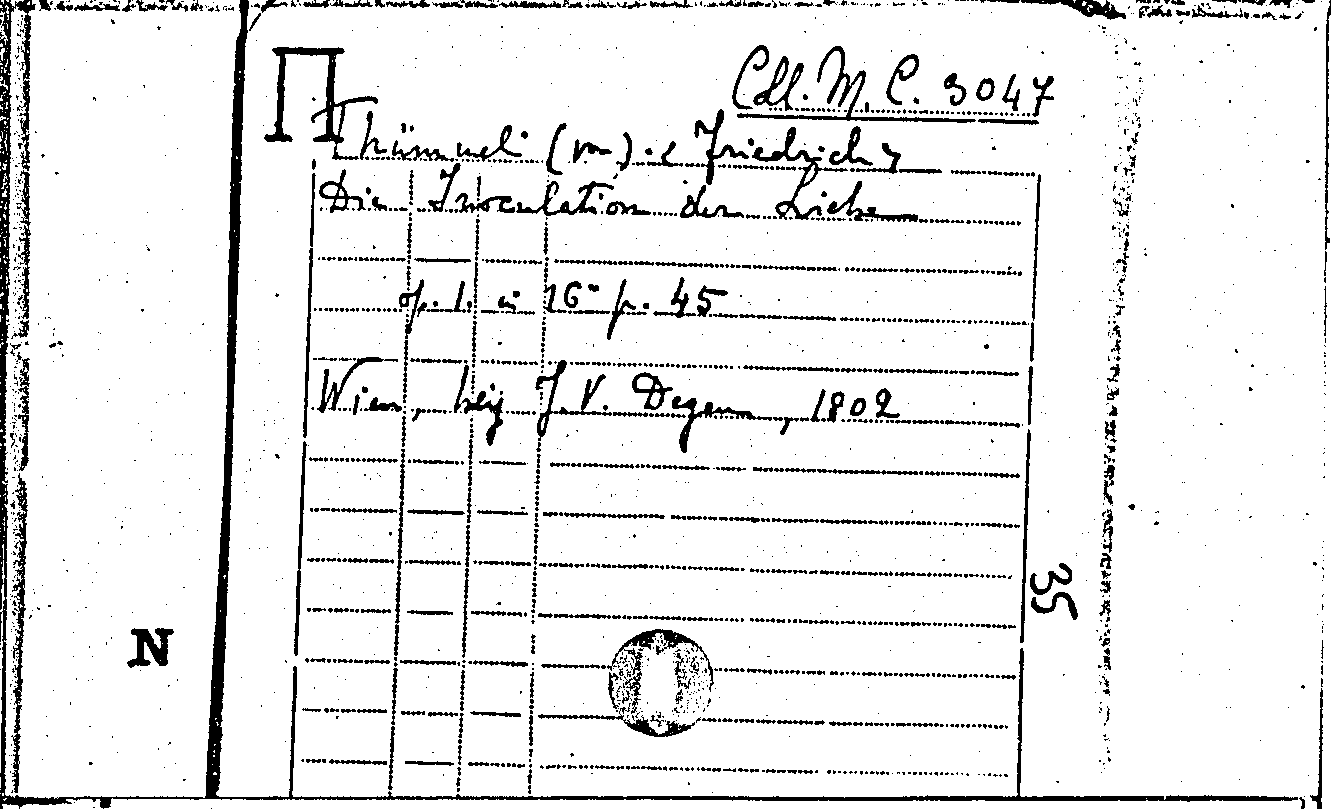 Π
Coll. M. C. 3047
Thümmel (von). < Friedrich >
Die Inoculation der Liebe
op. 1. in 16° p. 45
Wien, bey J. V. Degen, 1802
35
N